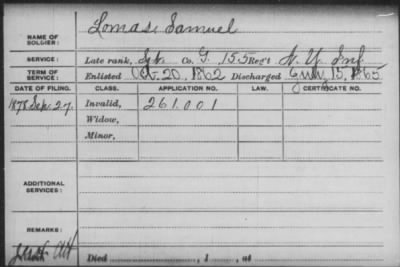 Lomas, Samuel
NAME OF SOLDIER:
SERVICE: Late rank, Sgt. Co. G. 155 Reg't N. Y. Inf
TERM OF SERVICE: Enlisted Oct. 20, 1862 Discharged July 15, 1865
DATE OF FILING. CLASS. APPLICATION NO. LAW. CERTIFICATE NO.
1878 Sep. 27. Invalid, 261.001
Widow,
Minor,
ADDITIONAL SERVICES:
REMARKS:
Died , 1 , at